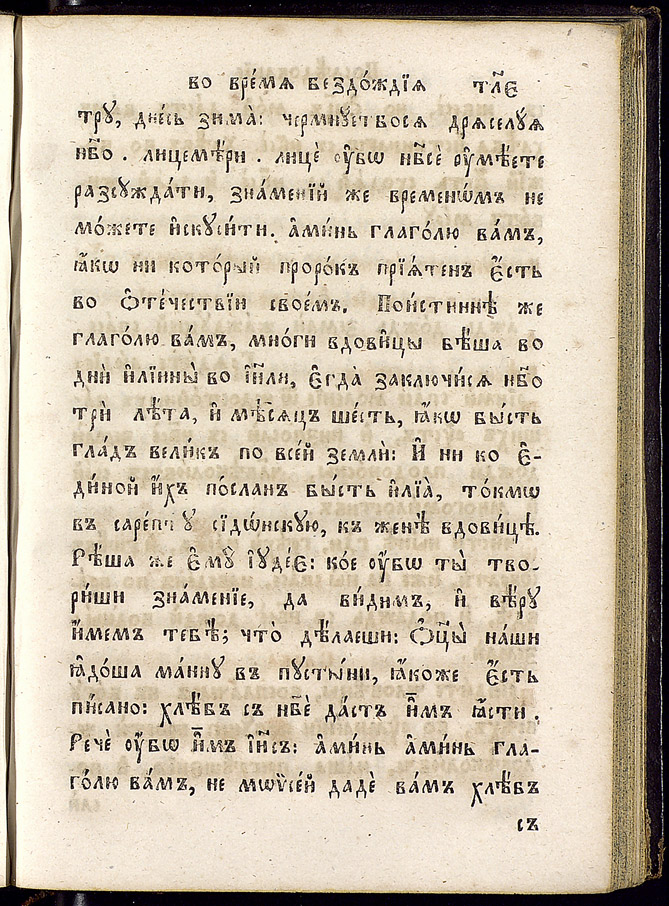 во вре́мѧ бездо́ждїѧ тл҃є
трꙋ, дне́сь зима̀: чермнꙋетбосѧ дрѧселꙋѧ
нб҃о . лицемѣ́ри . лицѐ ᲂу҆́бѡ нб҃сѐ рꙋмѣ́ете
разсꙋжда́ти, зна́менїй же временѡ́мъ не
мо́жете и҆скꙋси́ти. а҆ми́нь глаго́лю ва́мъ,
ꙗ҆́кѡ ни кото́рый проро́къ прїѧ́тенъ є҆́сть
во ѻ҆те́чествїи свое́мъ. Пои́стиннѣ же
глаго́лю ва́мъ, мно́ги вдови́цы бѣ́ша во
дни̑ и҆лїины̀ во і҆и҃ли, є҆гда̀ заключи́сѧ нб҃о
трѝ лѣ́та, и҆ мѣ́сѧцъ ше́сть, ꙗ҆́кѡ бы́сть
гла́дъ вели́къ по все́й землѝ: И҆ ни ко є҆-
ди́ной и҆́хъ по́сланъ бы́сть и҆лїа̀, то́кмѡ
въ саре́птꙋ сїдѡ́нскꙋю, къ женѣ̀ вдови́цѣ.
Рѣ́ша же є҆мꙋ̀ і҆ꙋде́є: ко́е ᲂу҆́бѡ ты̀ тво-
ри́ши зна́менїе, да ви́димъ, и҆ вѣ́рꙋ
и҆́мемъ тебѣ̀; что̀ дѣ́лаеши: Ѻ҆ц҃ы̀ на́ши
ꙗ҆до́ша ма́ннꙋ въ пꙋсты́ни, ꙗ҆́коже є҆́сть
пи́сано: хлѣ́бъ съ нб҃сѐ да́стъ и҆̀мъ ꙗ҆́сти .
Речѐ ᲂу҆́бѡ и҆̀мъ і҆и҃съ: а҆ми́нь а҆ми́нь гла-
го́лю ва́мъ, не мѡѷсе́й дадѐ ва́мъ хлѣ́бъ
съ